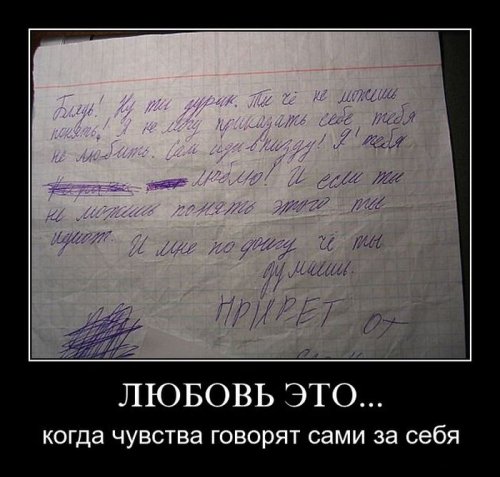 Блядь! Ну ты дурик. Ты чё не можешь
понять! Я не могу приказать себе тебя
не любить. Сам иди в пизду! Я тебя
люблю! И если ты
не можешь понять этого ты
идиот. И мне по фигу чё ты
думаешь.
ПРИВЕТ от
ЛЮБОВЬ ЭТО...
когда чувства говорят сами за себя